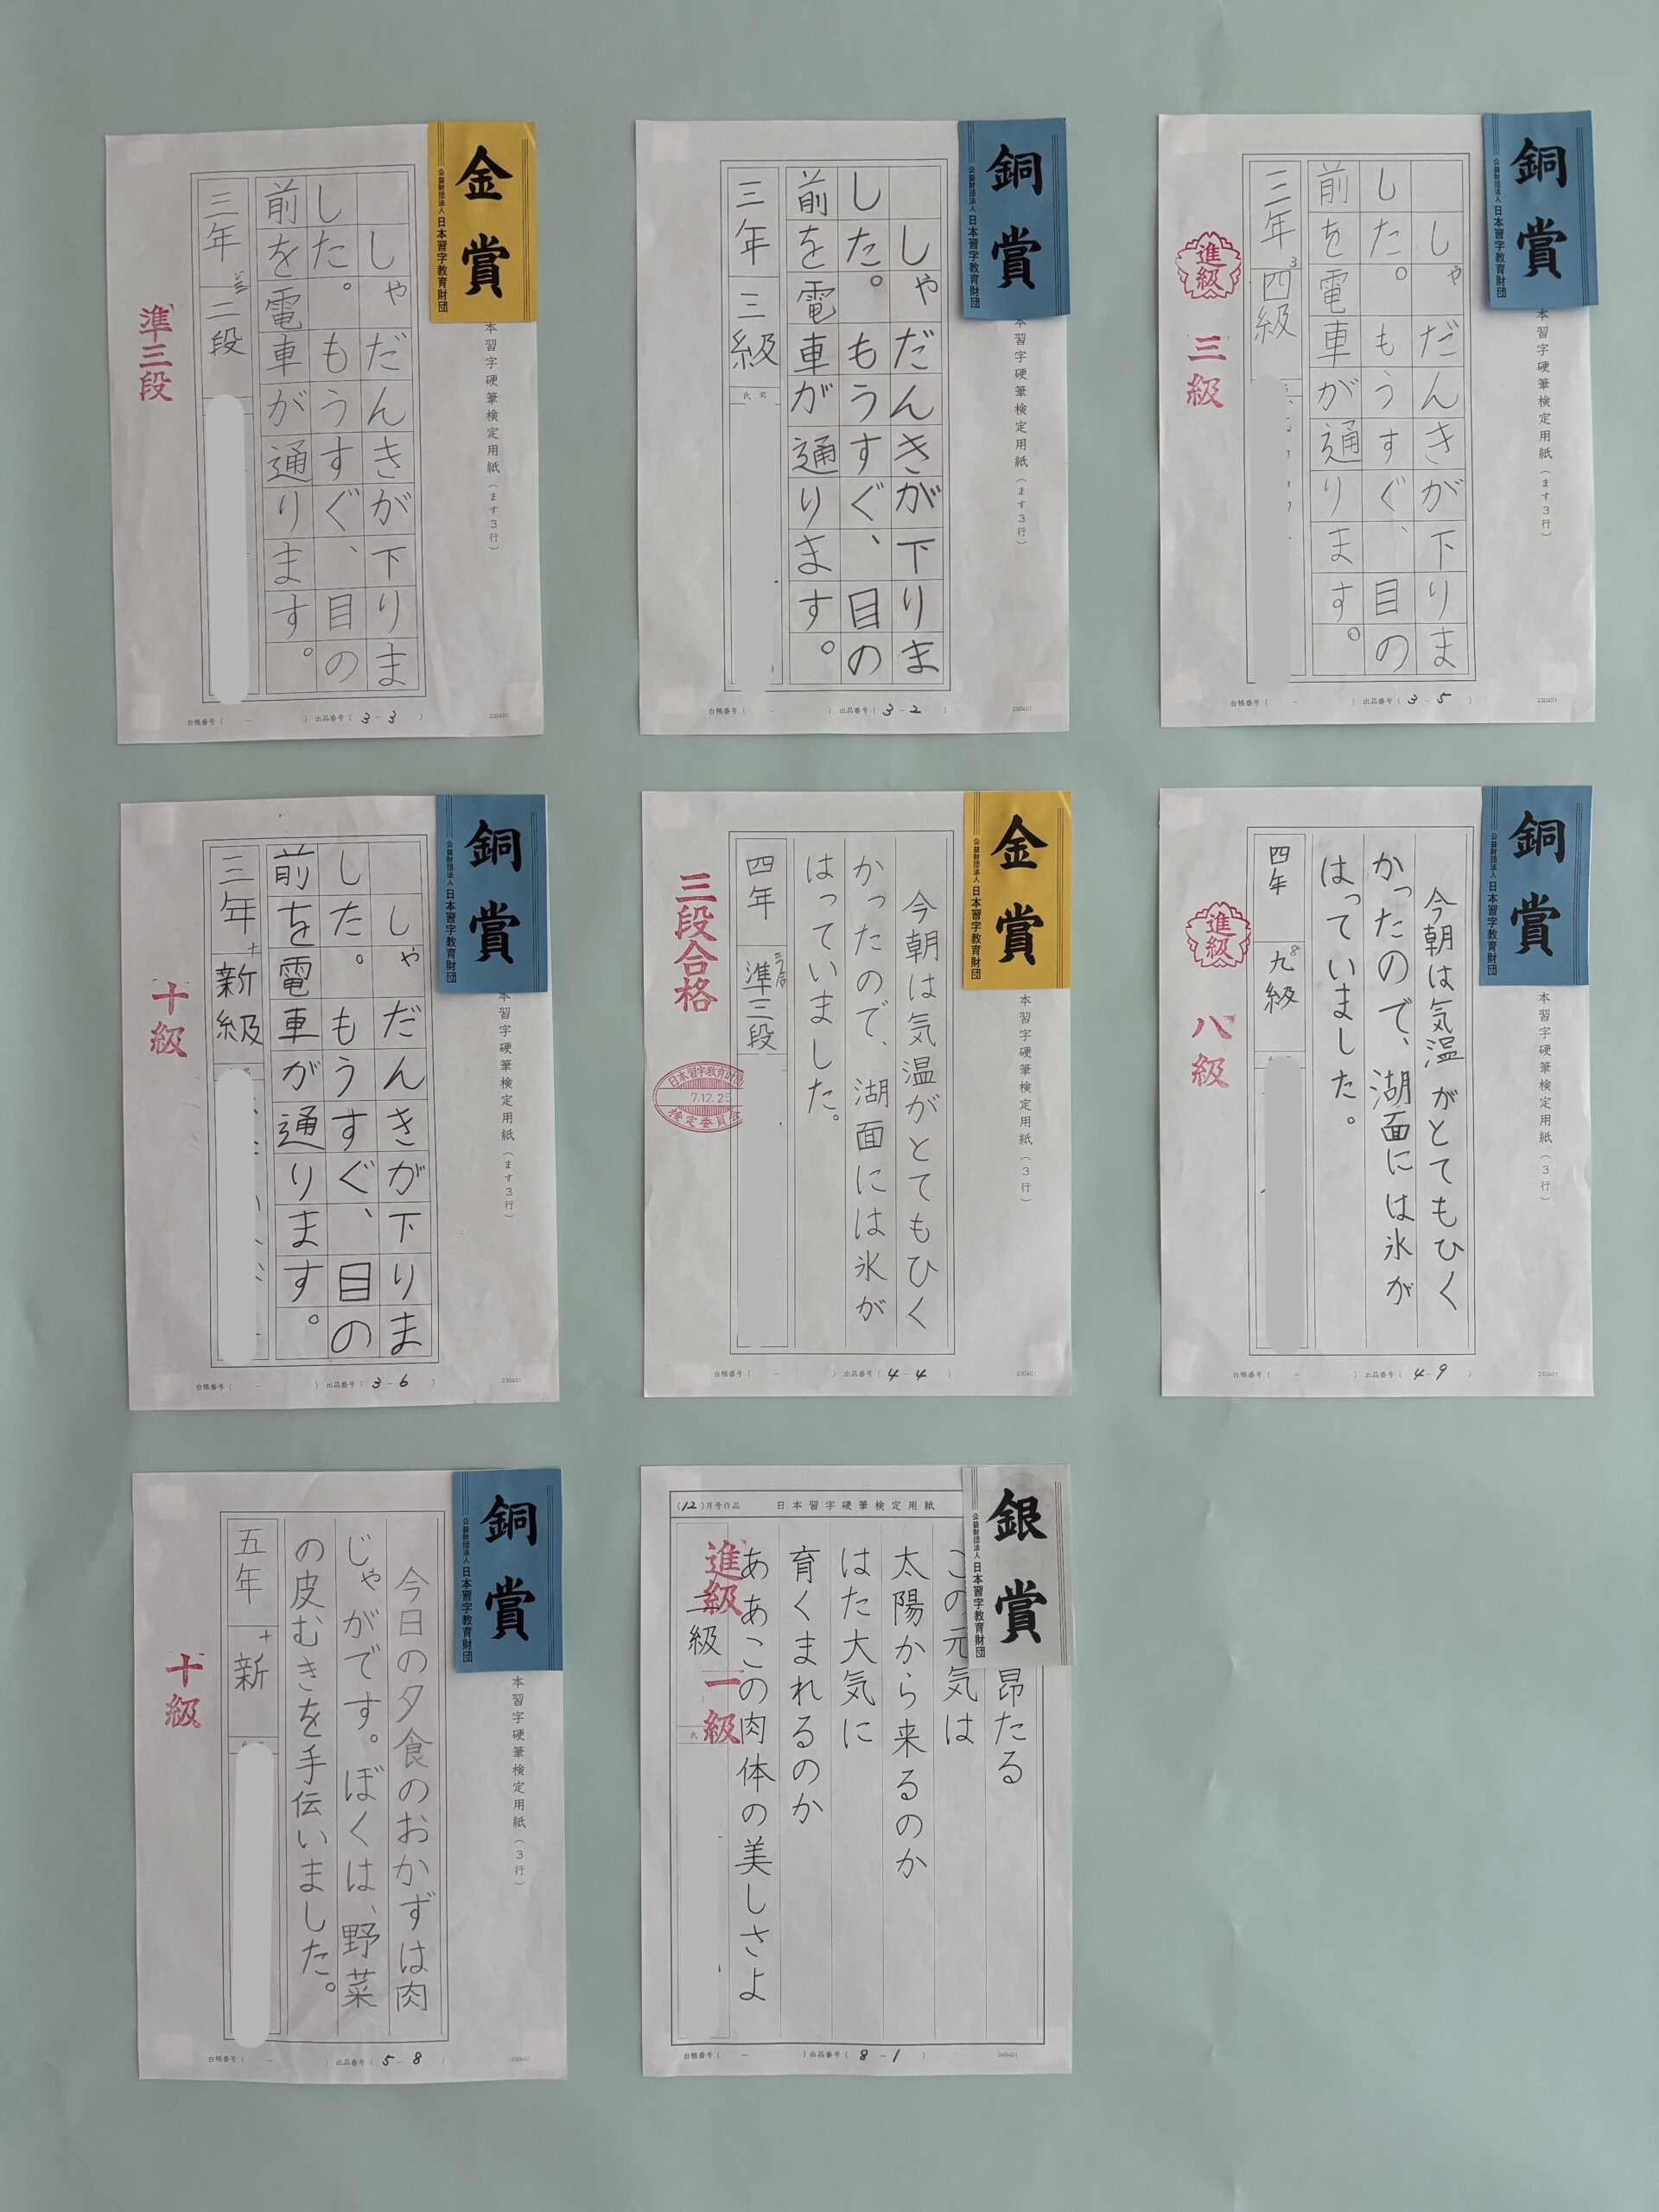 金賞
公益財団法人 日本習字教育財団
本習字硬筆検定用紙(ます3行)
しゃだんきが下りま
した。もうすぐ、目の
前を電車が通ります。
三年 二段
準三段
台帳番号( - ) 出品番号( 3-3 )
230401
銅賞
公益財団法人 日本習字教育財団
本習字硬筆検定用紙(ます3行)
しゃだんきが下りま
した。もうすぐ、目の
前を電車が通ります。
三年 三級
氏名
台帳番号( - ) 出品番号( 3-2 )
230401
銅賞
公益財団法人 日本習字教育財団
本習字硬筆検定用紙(ます3行)
しゃだんきが下りま
した。もうすぐ、目の
前を電車が通ります。
三年 四級
3
進級
三級
台帳番号( - ) 出品番号( 3-5 )
230401
銅賞
公益財団法人 日本習字教育財団
本習字硬筆検定用紙(ます3行)
しゃだんきが下りま
した。もうすぐ、目の
前を電車が通ります。
三年 新級
十
十級
台帳番号( - ) 出品番号( 3-6 )
230401
金賞
公益財団法人 日本習字教育財団
本習字硬筆検定用紙(3行)
今朝は気温がとてもひく
かったので、湖面には氷が
はっていました。
四年 準三段
三段合格
日本習字教育財団
7.12.25
検定委員会
台帳番号( - ) 出品番号( 4-4 )
230401
銅賞
公益財団法人 日本習字教育財団
本習字硬筆検定用紙(3行)
今朝は気温がとてもひく
かったので、湖面には氷が
はっていました。
四年 九級
8
進級
八級
台帳番号( - ) 出品番号( 4-9 )
230401
銅賞
公益財団法人 日本習字教育財団
本習字硬筆検定用紙(3行)
今日の夕食のおかずは肉
じゃがです。ぼくは、野菜
の皮むきを手伝いました。
五年 新
十
十級
台帳番号( - ) 出品番号( 5-8 )
230401
銀賞
公益財団法人 日本習字教育財団
(12)月号作品 日本習字硬筆検定用紙
昂たる
この元気は
太陽から来るのか
はた大気に
育くまれるのか
ああこの肉体の美しさよ
二級
進級
一級
台帳番号( - ) 出品番号( 8-1 )
240401